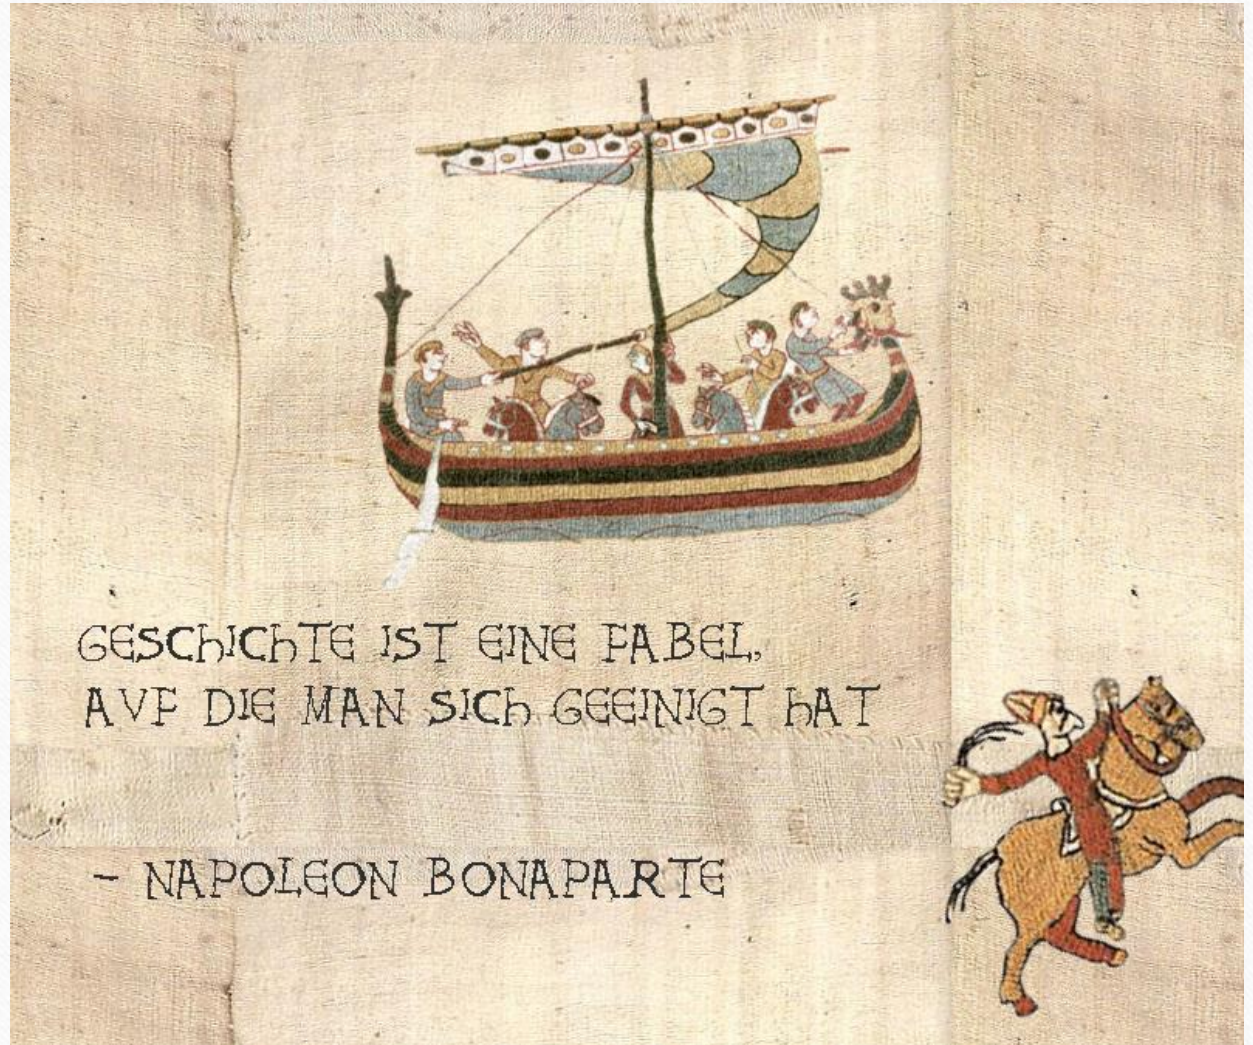 GESCHICHTE IST EINE FABEL,
AVF DIE MAN SICH GEEINIGT HAT
- NAPOLEON BONAPARTE